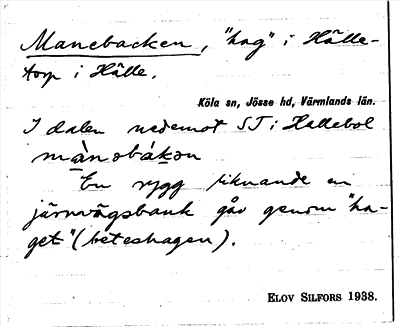 Manebacken, "hag" i Hälle-
torp i Hälle.
Köla sn, Jösse hd, Värmlands län.
I dalen nedemot ST i Hallebol
mànobákon
En rygg liknande en
järnvägsbank går genom "ha-
get" (beteshagen).
ELOV SILFORS 1938.